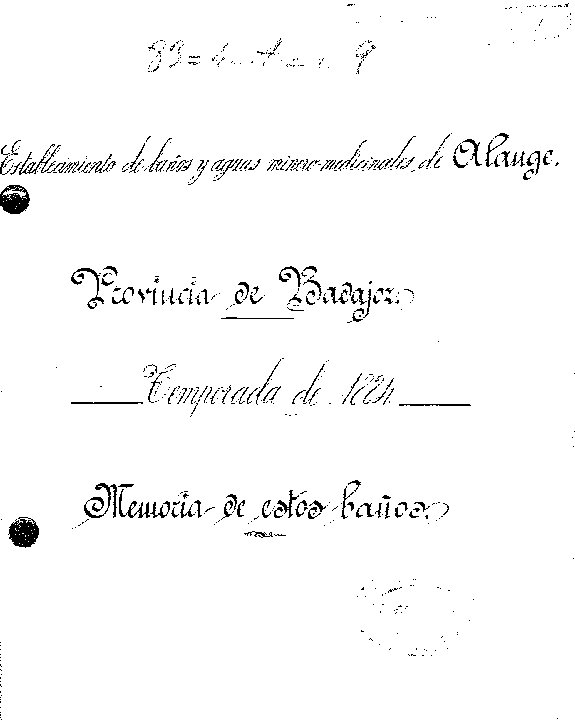 Establecimiento de baños y aguas minero-medicinales, de Alange.
Provincia de Badajoz.
Temporada de 1884
Memoria de estos baños.